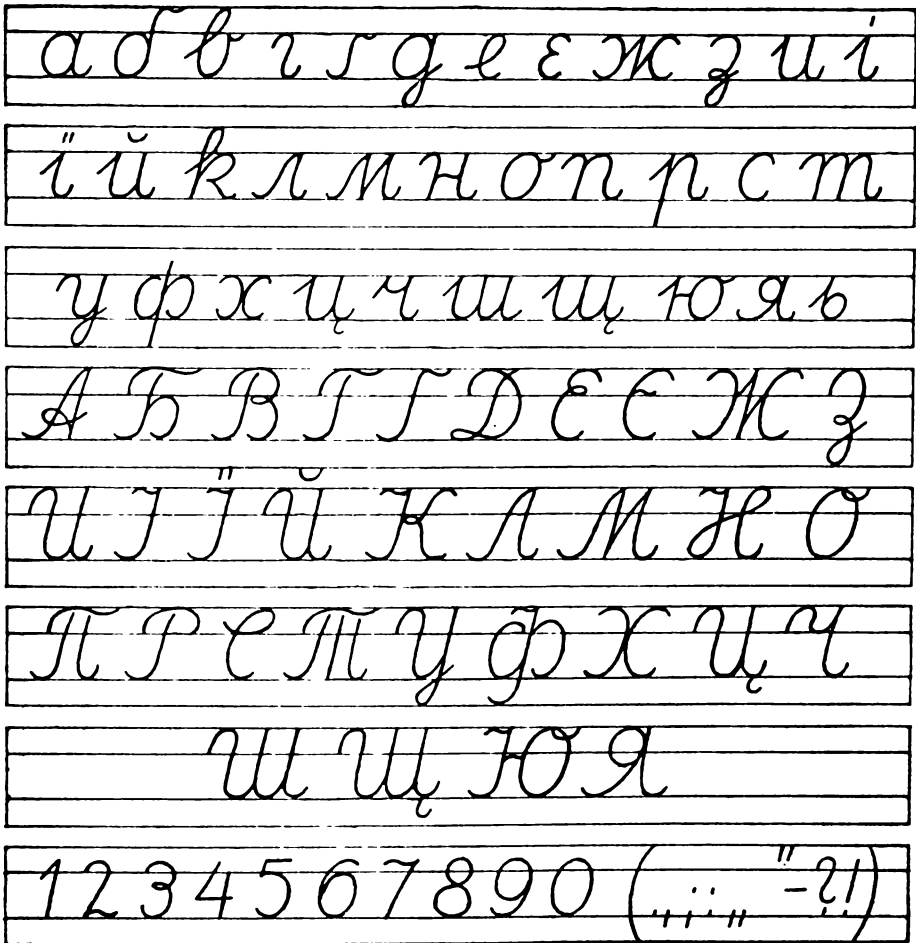 а б в г ґ д е є ж з и і
ї й к л м н о п р с т
у ф х ц ч ш щ ю я ь
А Б В Г Ґ Д Е Є Ж З
И І Ї Й К Л М Н О
П Р С Т У Ф Х Ц Ч
Ш Щ Ю Я
1 2 3 4 5 6 7 8 9 0 ( . , ; : „ " - ? ! )